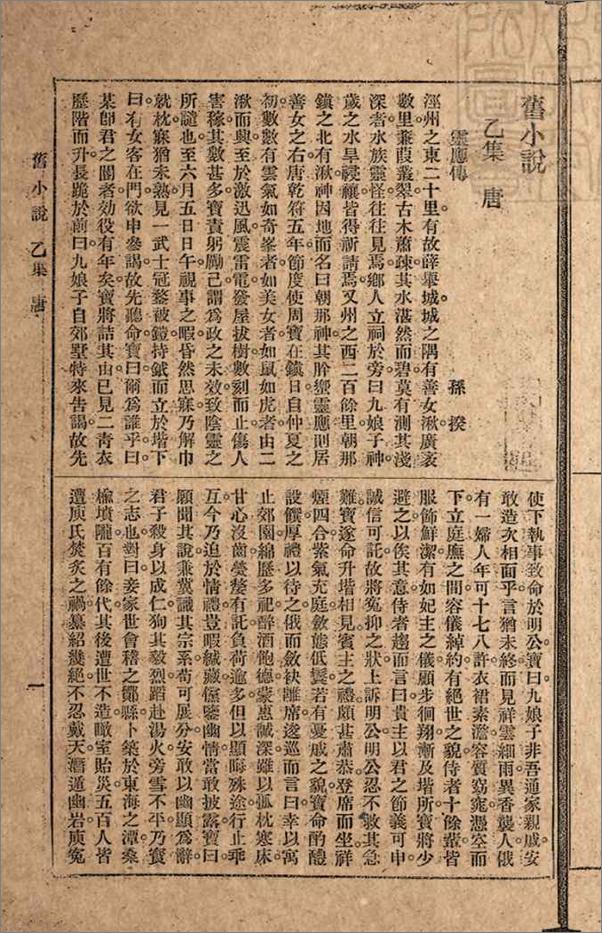 舊小說
乙集 唐
靈應傳
孫揆
涇州之東二十里有故薛舉城城之隅有善女湫廣袤
數里蒹葭叢翠古木蕭疎其水湛然而碧莫有測其淺
深者水族靈怪往往見焉鄉人立祠於旁曰九娘子神
歲之水旱祲禳皆得祈請焉又州之西二百餘里朝那
鎮之北有湫神因地而名曰朝那神其肸蠁靈應則居
善女之右唐乾符五年節度使周寶在鎮日自仲夏之
初數數有雲氣如奇峯者如美女者如鼠如虎者由二
湫而興至於激迅風震雷電發屋拔樹數刻而止傷人
害稼其數甚多寶責躬勵己謂爲政之未效致陰靈之
所譴也至六月五日午視事之暇昏然思寐乃解巾
就枕寐猶未熟見一武士冠鍪被鎧持鉞而立於堦下
曰有女客在門欲申參謁故先聽命寶曰爾爲誰乎曰
某卽君之閽者効役有年矣寶將詰其由已見二青衣
歷階而升長跪於前曰九娘子自郊墅特來告謁故先
使下執事致命於明公寶曰九娘子非吾通家親戚安
敢造次相面乎言猶未終而見祥雲細雨異香襲人俄
有一婦人年可十七八許衣裙素澹容質窈窕憑空而
下立庭廡之間容儀綽約有絕世之貌侍者十餘輩皆
服飾鮮潔有如妃主之儀顧步徊翔漸及堦所寶將少
避之以俟其意侍者趨而言曰貴主以君之節義可申
誠信可託故將寃抑之狀上訴明公明公忍不救其急
難寶遂命升堦相見賓主之禮頗甚肅恭登席而坐祥
煙四合紫氣充庭斂態低鬟若有憂戚之貌寶命酌醴
設饌厚禮以待之俄而斂袂離席逡巡而言曰幸以寓
止郊園綿歷多祀醉酒飽德蒙惠誠深雖以孤枕寒床
甘心沒齒煢嫠有託負荷逾多但以顯晦殊途行止乖
互今乃迫於情禮豈暇緘藏倘鑒幽情當敢披露寶曰
願聞其說兼冀識其宗系苟可展分安敢以幽顯爲辭
君子殺身以成仁狥其毅烈蹈赴湯火旁雪不平乃寶
之志也對曰妾家世會稽之鄮縣卜築於東海之潭桑
楡墳隴百有餘代其後遭世不造瞰室貽災五百人皆
遭庾氏焚炙之禍纂紹幾絕不忍戴天潛遁幽岩庾寃
舊小說 乙集 唐
一